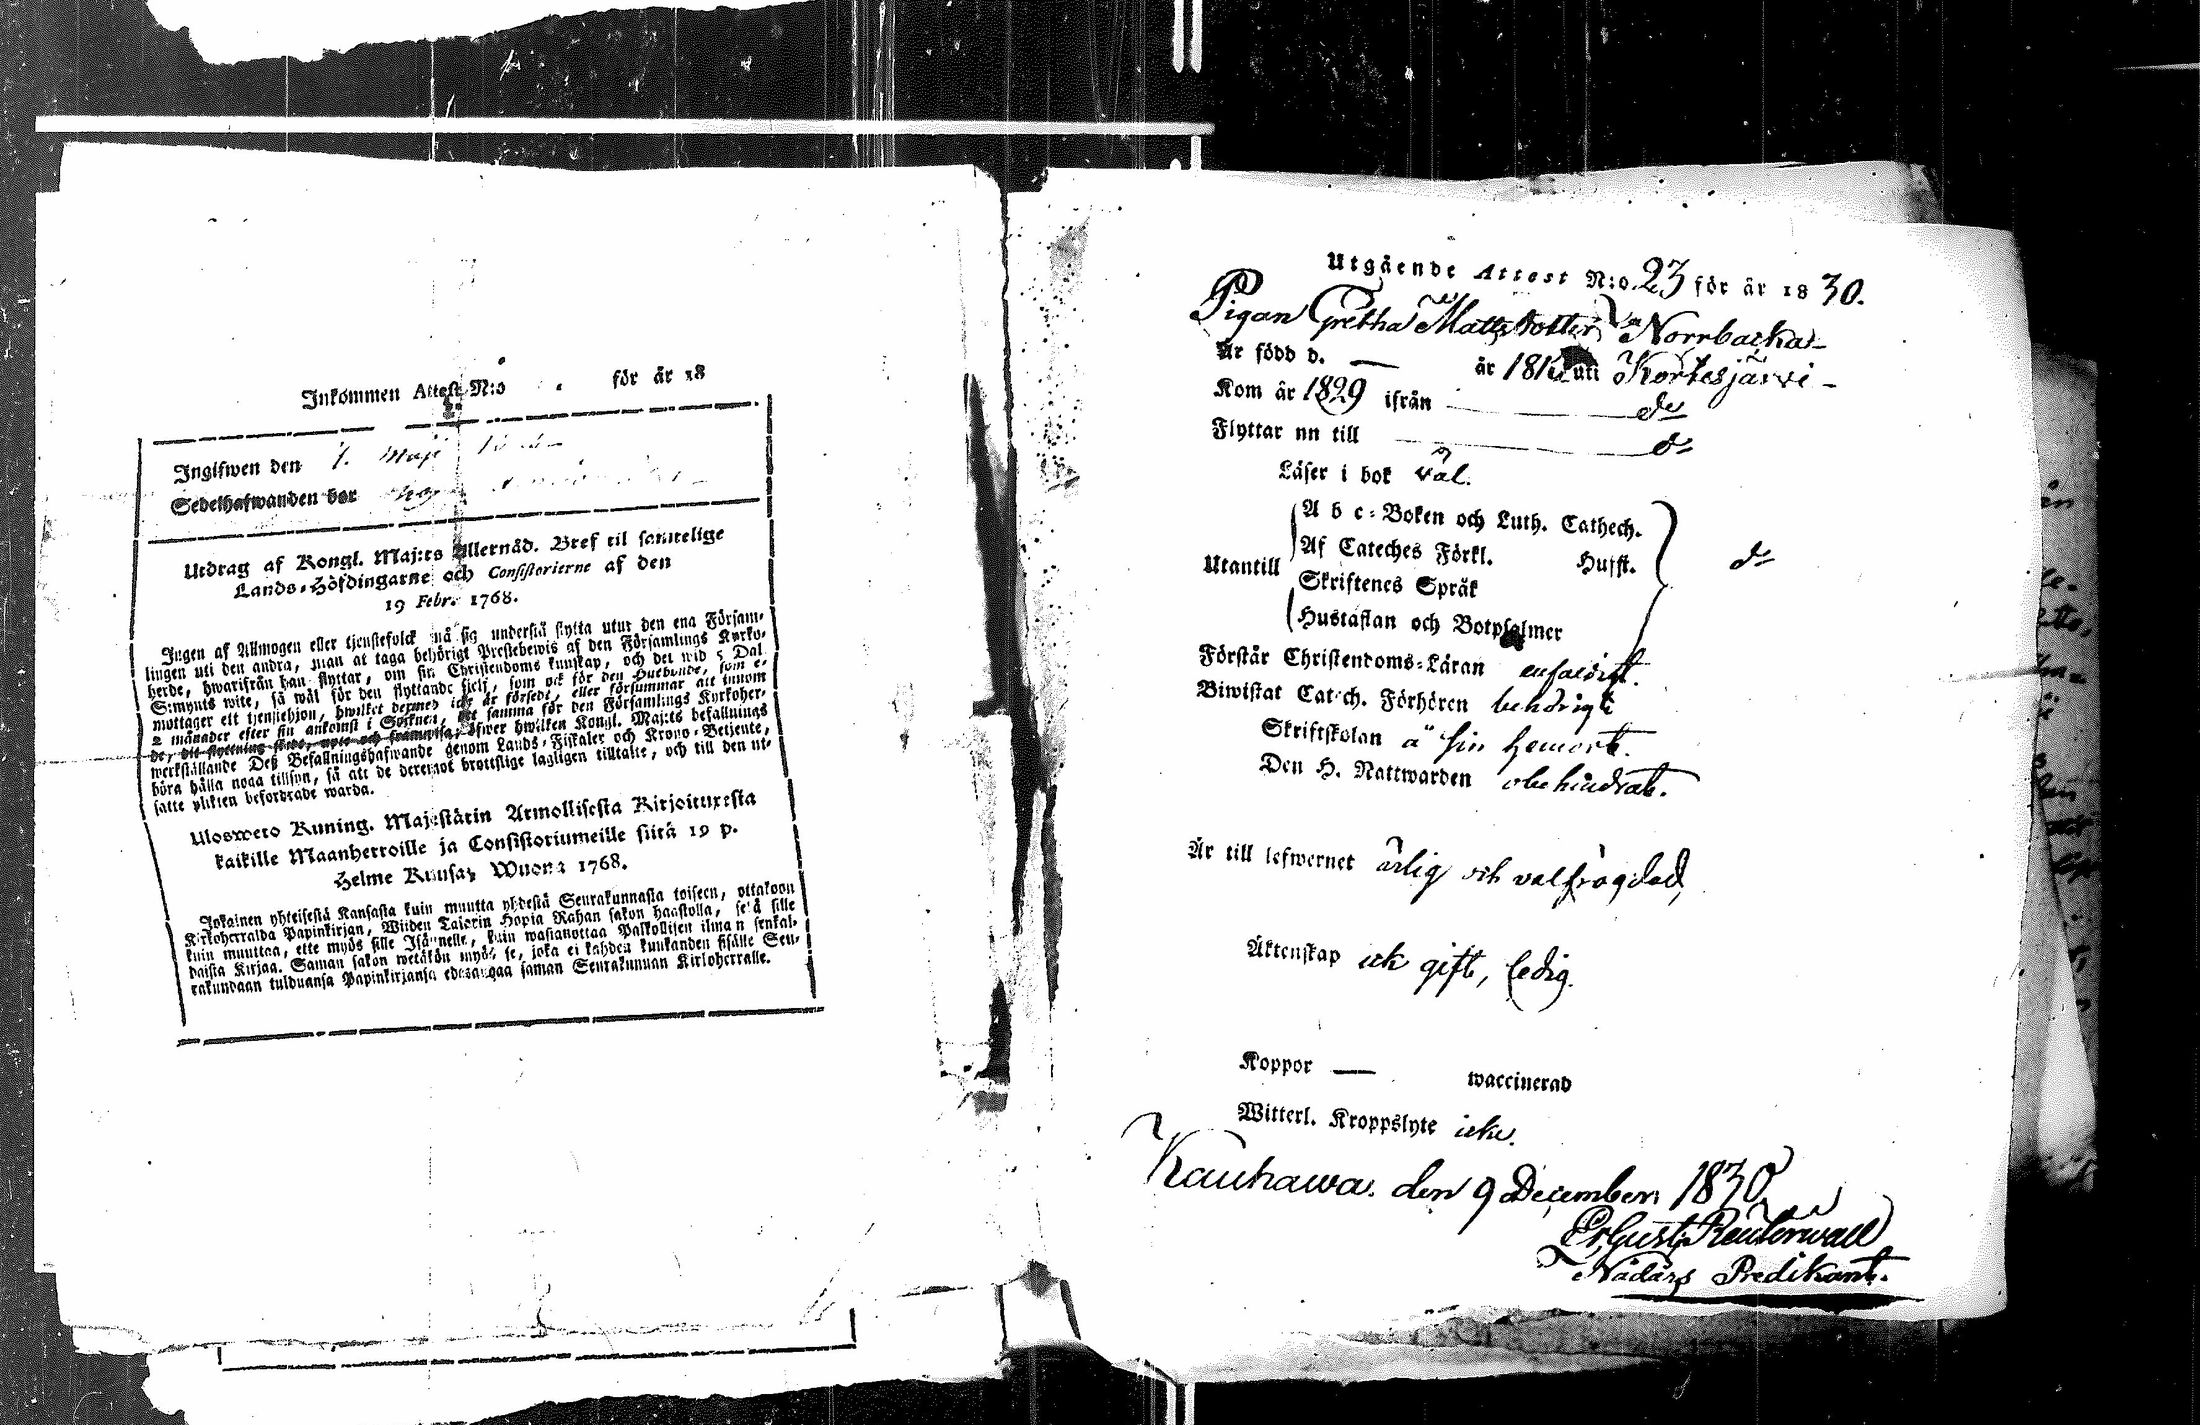 Inkommen Attest N:o för år 18
Ingifwen den 7. Maji
Sedelhafwanden bor
Utdrag af Kongl. Maj:ts Allernåd. Bref til samtelige
Lands-Höfdingarne och Consistorierne af den
19 Febr. 1768.
Ingen af Allmogen eller tjenstefolck må sig understå flytta utur den ena Försam-
lingen uti den andra, utan at taga behörigt Prestebewis af den Församlings Kyrko-
herde, hwarifrån han flyttar, om sin Christendoms kunskap, och det wid 5 Dal.
S:mynts wite, så wäl för den flyttande sielf, som ock för den Husbonde, som e-
mottager ett tjenstehjon, hwilket dermed icke är försedt, eller försummar att innom
2 månader efter sin ankomst i Soknen, det samma för den Församlings Kyrkoher-
de, dit flyttning skedt, upte och framwisa, öfwer hwilken Kongl. Maj:ts befallnings
werkställande Deß Befallningshafwande genom Lands-Fiskaler och Krono-Betjente,
böra hålla noga tillsyn, så att de deremot brottslige lagligen tilltalte, och till den ut-
satte plikten befordrade warda.
Ulosweto Kuning. Majestätin Armollisesta Kirjoituxesta
kaikille Maanherroille ja Consistoriumeille siitä 19 p.
Helme Kuusa, Wuona 1768.
Jokainen yhteisestä Kansasta kuin muutta yhdestä Seurakunnasta toiseen, ottakoon
Kirkoherralda Papinkirjan, Wiiden Talarin Hopia Rahan sakon haastolla, sekä sille
kuin muuttaa, ette myös sille Isännelle, kuin wastanottaa Palkollisen ilman senkal-
daista Kirjaa. Saman sakon wetäkön myös se, joka ei kahden kuukanden sisälle Seu-
rakundaan tulduansa Papinkirjansa edesangaa saman Seurakunnan Kirkoherralle.
Utgående Attest N:o 23 för år 1830.
Pigan Gretha Mattsdotter Norrbacka
Är född d. — år 181 uti Kortesjärvi
Kom år 1829 ifrån do
Flyttar nu till do
Läser i bok väl.
A b c-Boken och Luth. Cathech.
Af Cateches Förkl. Husst.
Utantill do
Skriftenes Språk
Hustaflan och Botpsalmer
Förstår Christendoms-Läran enfaldigt.
Biwistat Catech. Förhören behörigt
Skriftskolan å sin hemort.
Den H. Nattwarden obehindrat.
Är till lefwernet ärlig och välfrägdad,
Äktenskap ick gift, ledig.
Koppor — waccinerad
Witterl. Kroppslyte icke.
Kauhawa. den 9 December 1830
Er. Gust. Reuterwall
Nådårs Predikant.